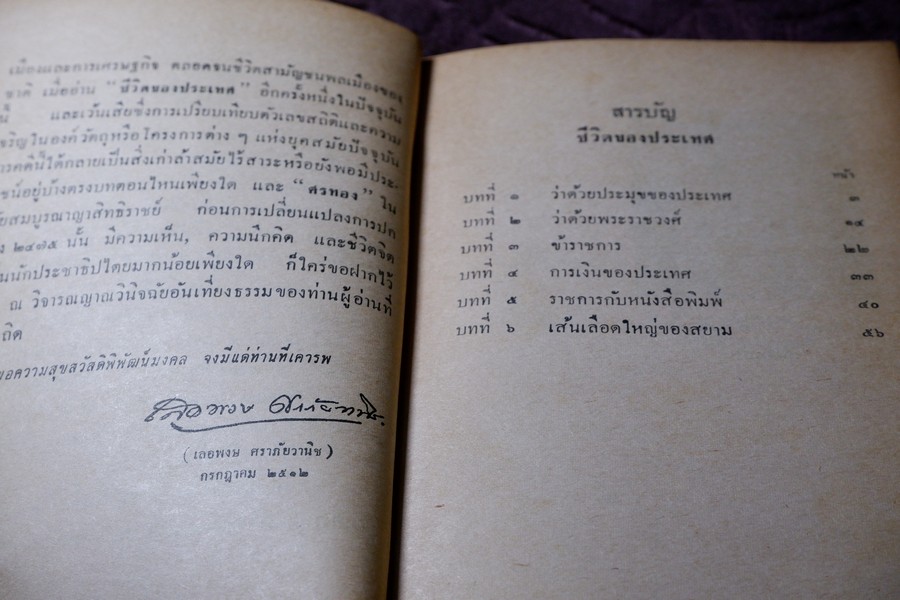 เมืองและการเศรษฐกิจ ตลอดจนชีวิตสามัญชนพลเมืองของ
ชาติ เมื่ออ่าน “ชีวิตของประเทศ” อีกครั้งหนึ่งในปัจจุบัน
นี้ และเว้นเสียซึ่งการเปรียบเทียบตัวเลขสถิติและความ
เจริญในองค์วัตถุหรือโครงการต่าง ๆ แห่งยุคสมัยปัจจุบัน
ารคดีนี้ได้กลายเป็นสิ่งเก่าล้าสมัยไร้สาระหรือยังพอมีประ-
ชน์อยู่บ้างตรงบทตอนไหนเพียงใด และ “ศรทอง” ใน
ยสมบูรณาญาสิทธิราชย์ ก่อนการเปลี่ยนแปลงการปก
ง ๒๔๗๕ นั้น มีความเห็น, ความนึกคิด และชีวิตจิต
นนักประชาธิปไตยมากน้อยเพียงใด ก็ใคร่ขอฝากไว้
ณ วิจารณญาณวินิจฉัยอันเที่ยงธรรมของท่านผู้อ่านที่
ถิด
ขอความสุขสวัสดิพิพัฒน์มงคล จงมีแด่ท่านที่เคารพ
เฉลอพงษ ศราภัยวานิช
(เลอพงษ ศราภัยวานิช)
กรกฎาคม ๒๕๑๒
สารบัญ
ชีวิตของประเทศ
หน้า
บทที่ ๑ ว่าด้วยประมุขของประเทศ ๓
บทที่ ๒ ว่าด้วยพระราชวงศ์ ๑๔
บทที่ ๓ ข้าราชการ ๒๒
บทที่ ๔ การเงินของประเทศ ๓๓
บทที่ ๕ ราชการกับหนังสือพิมพ์ ๔๐
บทที่ ๖ เส้นเลือดใหญ่ของสยาม ๕๖